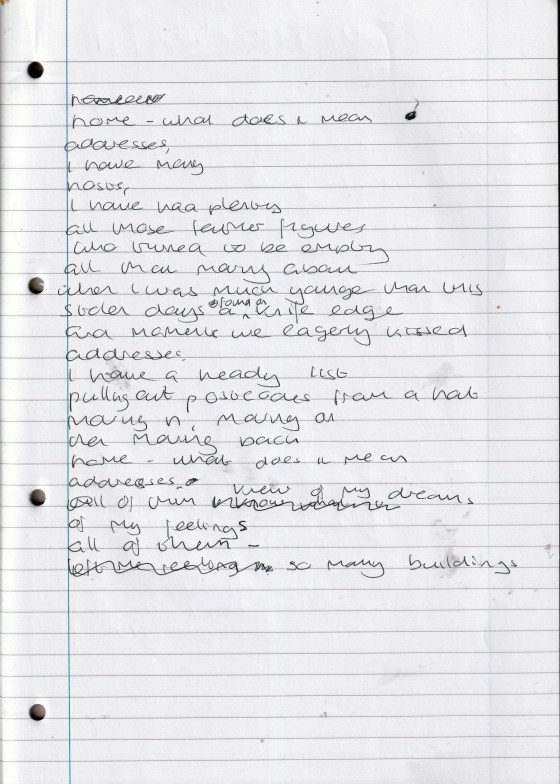 home - what does it mean
addresses,
I have many
hosts,
I have had plenty
all those father figures
who turned to be empty
all that many about
when I was much younger than this
sober days found on a knife edge
and moments we eagerly kissed
addresses,
I have a heady list
pulling out postcodes from a hat
moving in, moving on
then moving back
home - what does it mean
addresses.
all of them view of my dreams
of my feelings
all of them -
so many buildings